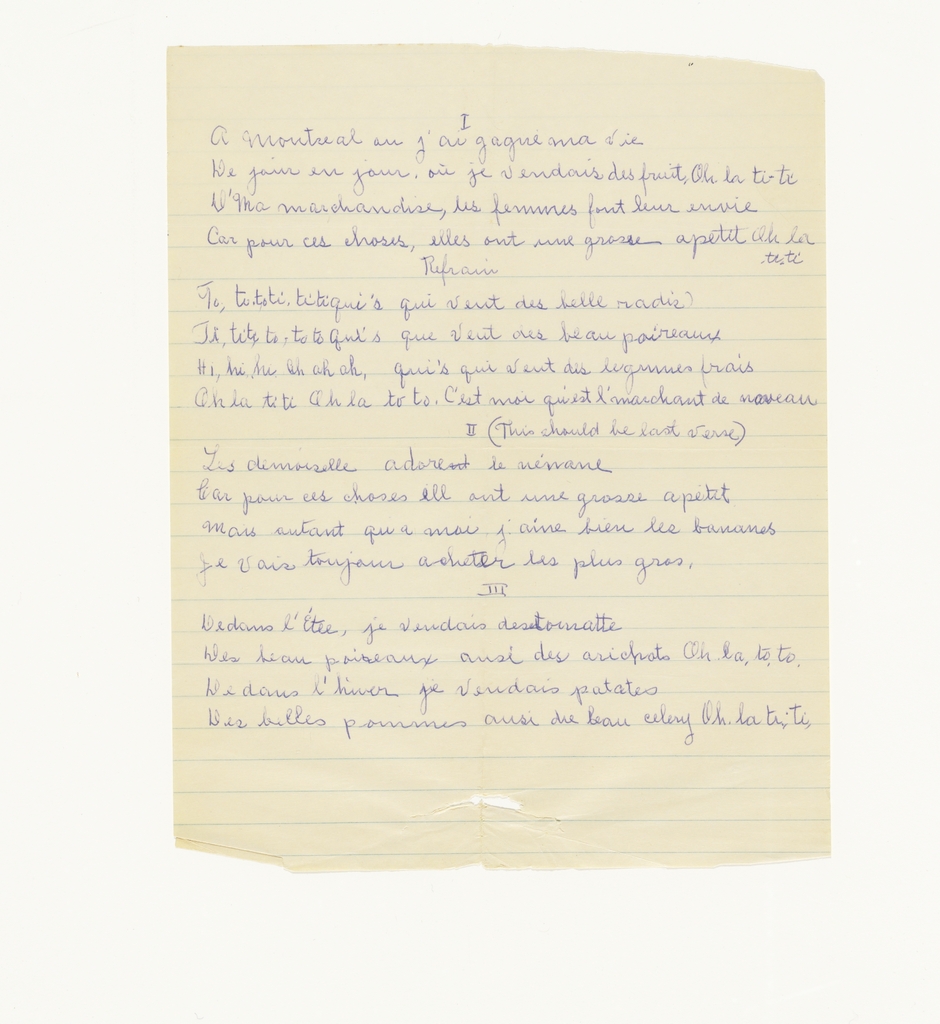 I
A Montreal ou j'ai gagné ma vie
De jour en jour, où je vendais des fruit, Oh la ti-ti
D'Ma marchandise, les femmes font leur envie
Car pour ces choses, elles ont une grosse apetit Oh la
ti-ti
Refrain
To, to.toti. titiqui's qui veut des belle radis
Ti, titi, to, to to qui's que veut des beau poireaux
Hi, hi, hi, Oh ah ah, qui's qui veut des legumes frais
Oh la ti ti Oh la to to. C'est moi qu'est l'marchant de naveau
II (This should be last verse)
Les demoiselle adorent le
Car pour ces choses ell ont une grosse apétit
Mais autant qu a moi j'aîne bien les bananes
Je vais toujour acheter les plus gros.
III
Dedans l'Étée, je vendais des tomatte
Des beau poiseaux ausi des arichots Oh la, to, to.
De dans l'hiver je vendais patates
Des belles pommes ausi die beau celery Oh. la ti, ti,